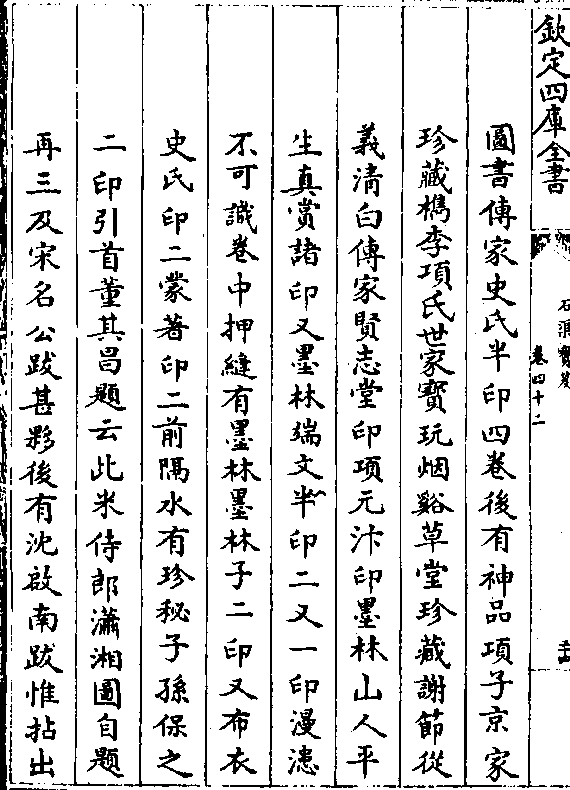 欽定四庫全書
石渠寶笈
卷四十二
圖書傳家史氏半印四卷後有神品項子京家
珍藏檇李項氏世家寶玩烟谿草堂珍藏謝節從
義清白傳家賢志堂印項元汴印墨林山人平
生真賞諸印又墨林端文半印二又一印漫漶
不可識卷中押縫有墨林墨林子二印又布衣
史氏印二蒙著印二前隔水有珍秘子孫保之
二印引首董其昌題云此米侍郎瀟湘圖自題
再三及宋名公跋甚夥後有沈啟南跋惟拈出